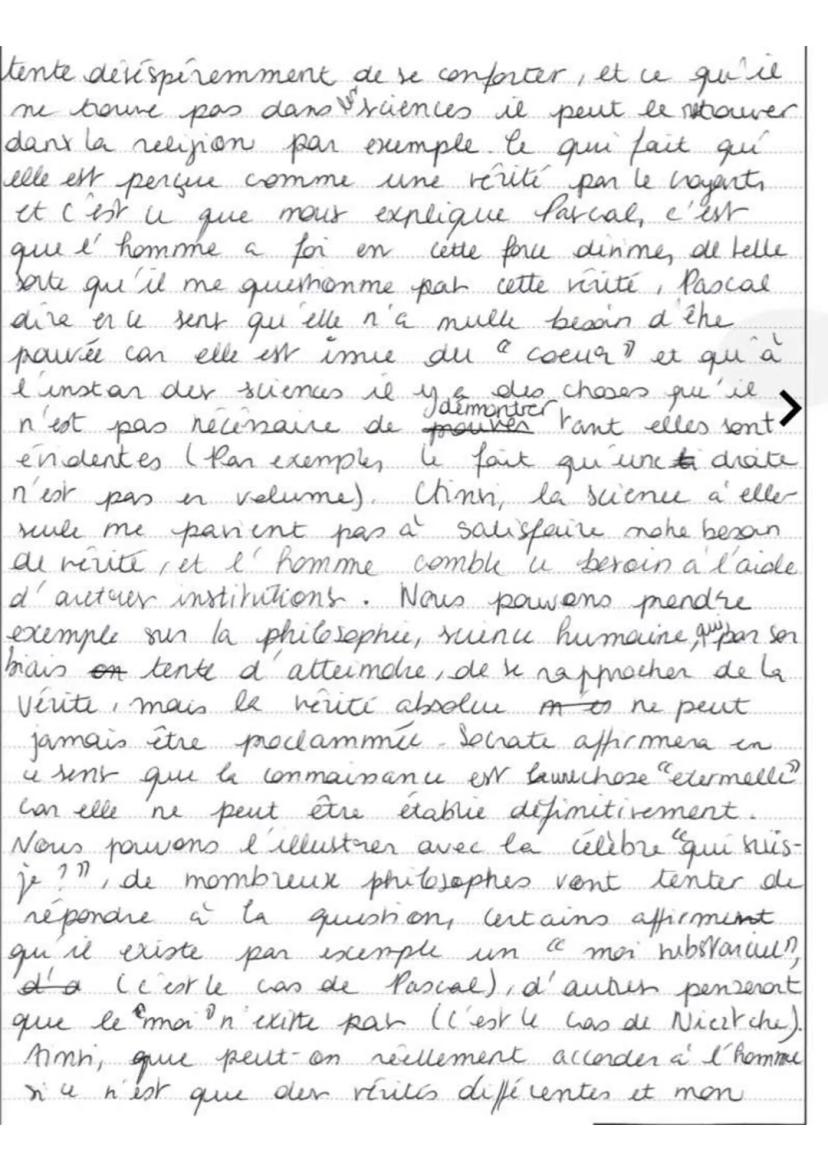 tente déséspéremment de se conforter, et ce qu'il
ne trouve pas dans les sciences il peut le retrouver
dans la religion par exemple. Ce qui fait qu'
elle est perçue comme une vérité par le croyant,
et c'est ce que nous explique Pascal, c'est
que l'homme a foi en cette force divine, de telle
sorte qu'il ne questionne pas cette vérité, Pascal
dire en ce sens qu'elle n'a nulle besoin d'être
pouvée car elle est imie du "coeur" et qu'à
l'instar des sciences il y a des choses qu'il
n'est pas nécénaire de démontrer tant elles sont
évidentes (Par exemple, le fait qu'une droite
n'est pas en volume). Ainsi, la science à elle
seule ne parient pas à satisfaire notre besoin
de vérité, et l'homme comble ce besoin à l'aide
d'autres institutions. Nous pouvons prendre
exemple sur la philosophie, science humaine, qui par son
biais tente d'atteindre, de se rapprocher de la
vérité, mais la vérité absolue ne peut
jamais être proclammée. Socrate affirmera en
ce sens que la connaissance est chose "eternelle"
car elle ne peut être établie définitivement.
Nous pouvons l'illustrer avec la célèbre "qui suis-
je ?", de nombreux philosophes vont tenter de
répondre à la question, certains affirment
qu'il existe par exemple un "moi substanciel",
(c'est le cas de Pascal), d'autres penseront
que le "moi" n'existe pas (c'est le cas de Nieztche).
Ainsi, que peut-on réellement accorder à l'homme
si ce n'est que des vérités différentes et non